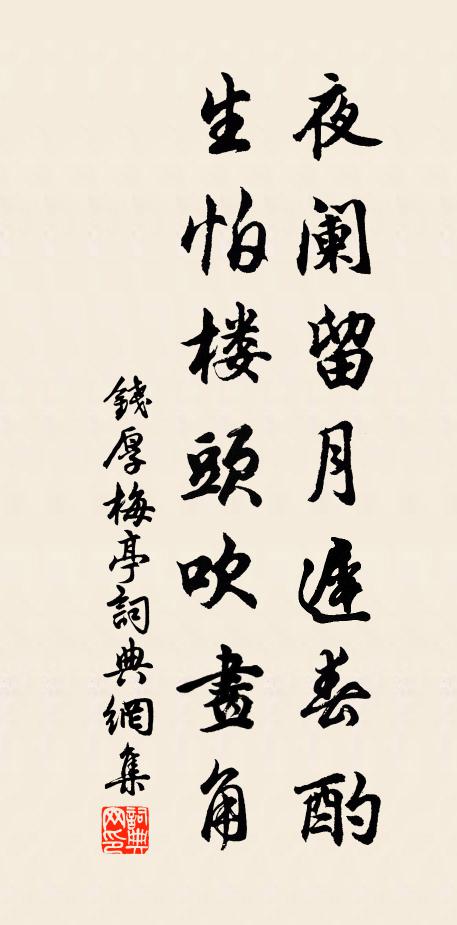 夜阑留月遲春酌
生怕楼頭吹畫角
錢厚梅亭詞典網集
詞典网印